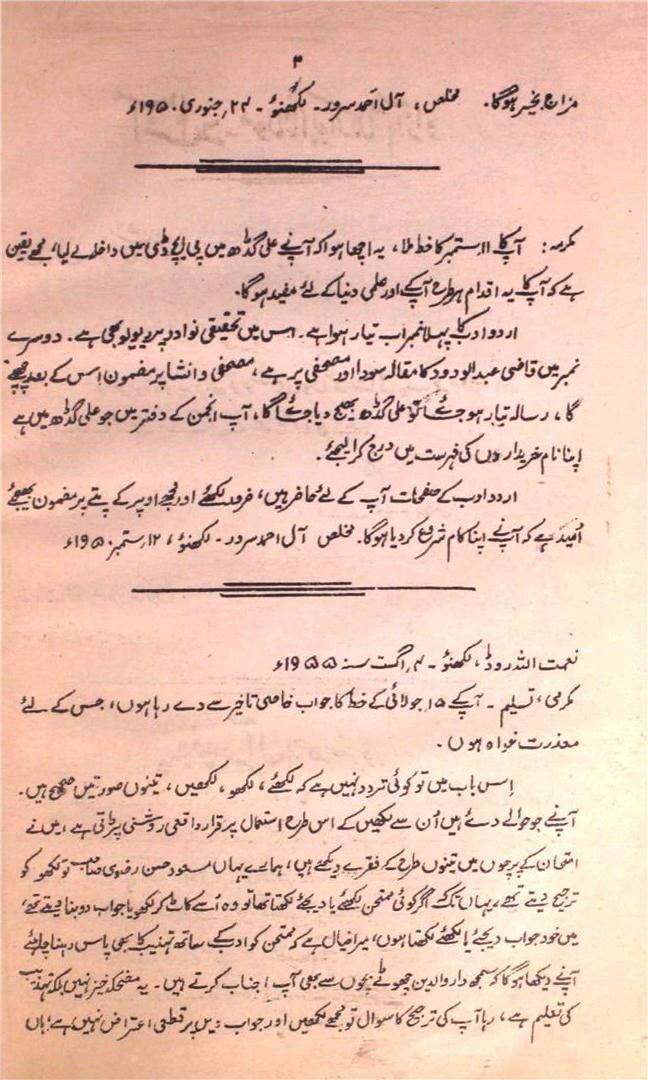 ۳
مزاج بخیر ہوگا۔ مخلص، آل احمد سرور۔ لکھنؤ۔ ۲۲؍ جنوری ۱۹۵۰ء
مکرمہ: آپ کا ۱۱ ستمبر کا خط ملا، یہ اچھا ہوا کہ آپ نے علی گڈھ میں پی ایچ ڈی میں داخلہ لے لیا، مجھے یقین
ہے کہ آپ کا یہ اقدام ہر طرح آپ کے اور علمی دنیا کے لئے مفید ہوگا۔
اردو ادب کا پہلا نمبر اب تیار ہوا ہے۔ اس میں تحقیقی نوادر پر ریویو بھی ہے۔ دوسرے
نمبر میں قاضی عبدالودود کا مقالہ سودا اور مصحفی پر ہے، مصحفی و انشا پر مضمون اس کے بعد چھپے
گا، رسالہ تیار ہو جائے گا تو علی گڈھ بھیج دیا جائے گا، آپ انجمن کے دفتر میں جو علی گڈھ میں ہے
اپنا نام خریداروں کی فہرست میں درج کرا لیجئے۔
اردو ادب کے صفحات آپ کے لئے حاضر ہیں، ضرور لکھئے اور مجھے اوپر کے پتے پر مضمون بھیجئے
اُمید ہے کہ آپ نے اپنا کام شروع کر دیا ہوگا۔ مخلص آل احمد سرور۔ لکھنؤ، ۱۲؍ ستمبر ۱۹۵۰ء
نعمت اللہ روڈ، لکھنؤ۔ ۴؍ اگست سنہ ۱۹۵۵ء
مکرمی، تسلیم۔ آپ کے ۱۵ جولائی کے خط کا جواب خاصی تاخیر سے دے رہا ہوں، جس کے لئے
معذرت خواہ ہوں۔
اِس باب میں تو کوئی تردد نہیں ہے کہ لکھئے، لکھو، لکھیں، تینوں صورتیں صحیح ہیں۔
آپ نے جو حوالے دئے ہیں اُن سے لکھیں کے اس طرح استعمال پر قرار واقعی روشنی پڑتی ہے، میں نے
امتحان کے پرچوں میں تینوں طرح کے فقرے دیکھے ہیں، ہمارے یہاں مسعود حسن رضوی صاحب تو لکھو کو
ترجیح دیتے تھے، یہاں تک کہ اگر کوئی ممتحن لکھئے یا دیجئے لکھتا تھا تو وہ اُسے کاٹ کر لکھو یا جواب دو بنا دیتے تھے،
میں خود جواب دیجئے یا لکھئے لکھتا ہوں، میرا خیال ہے کہ ممتحن کو ادب کے ساتھ تہذیب کا بھی پاس رہنا چاہئے
آپ نے دیکھا ہوگا کہ سمجھ دار والدین چھوٹے بچوں سے بھی آپ جناب کرتے ہیں۔ یہ مضحکہ خیز نہیں بلکہ تہذیب
کی تعلیم ہے، رہا آپ کی ترجیح کا سوال تو مجھے لکھیں اور جواب دیں پر قطعی اعتراض نہیں ہے، ہاں